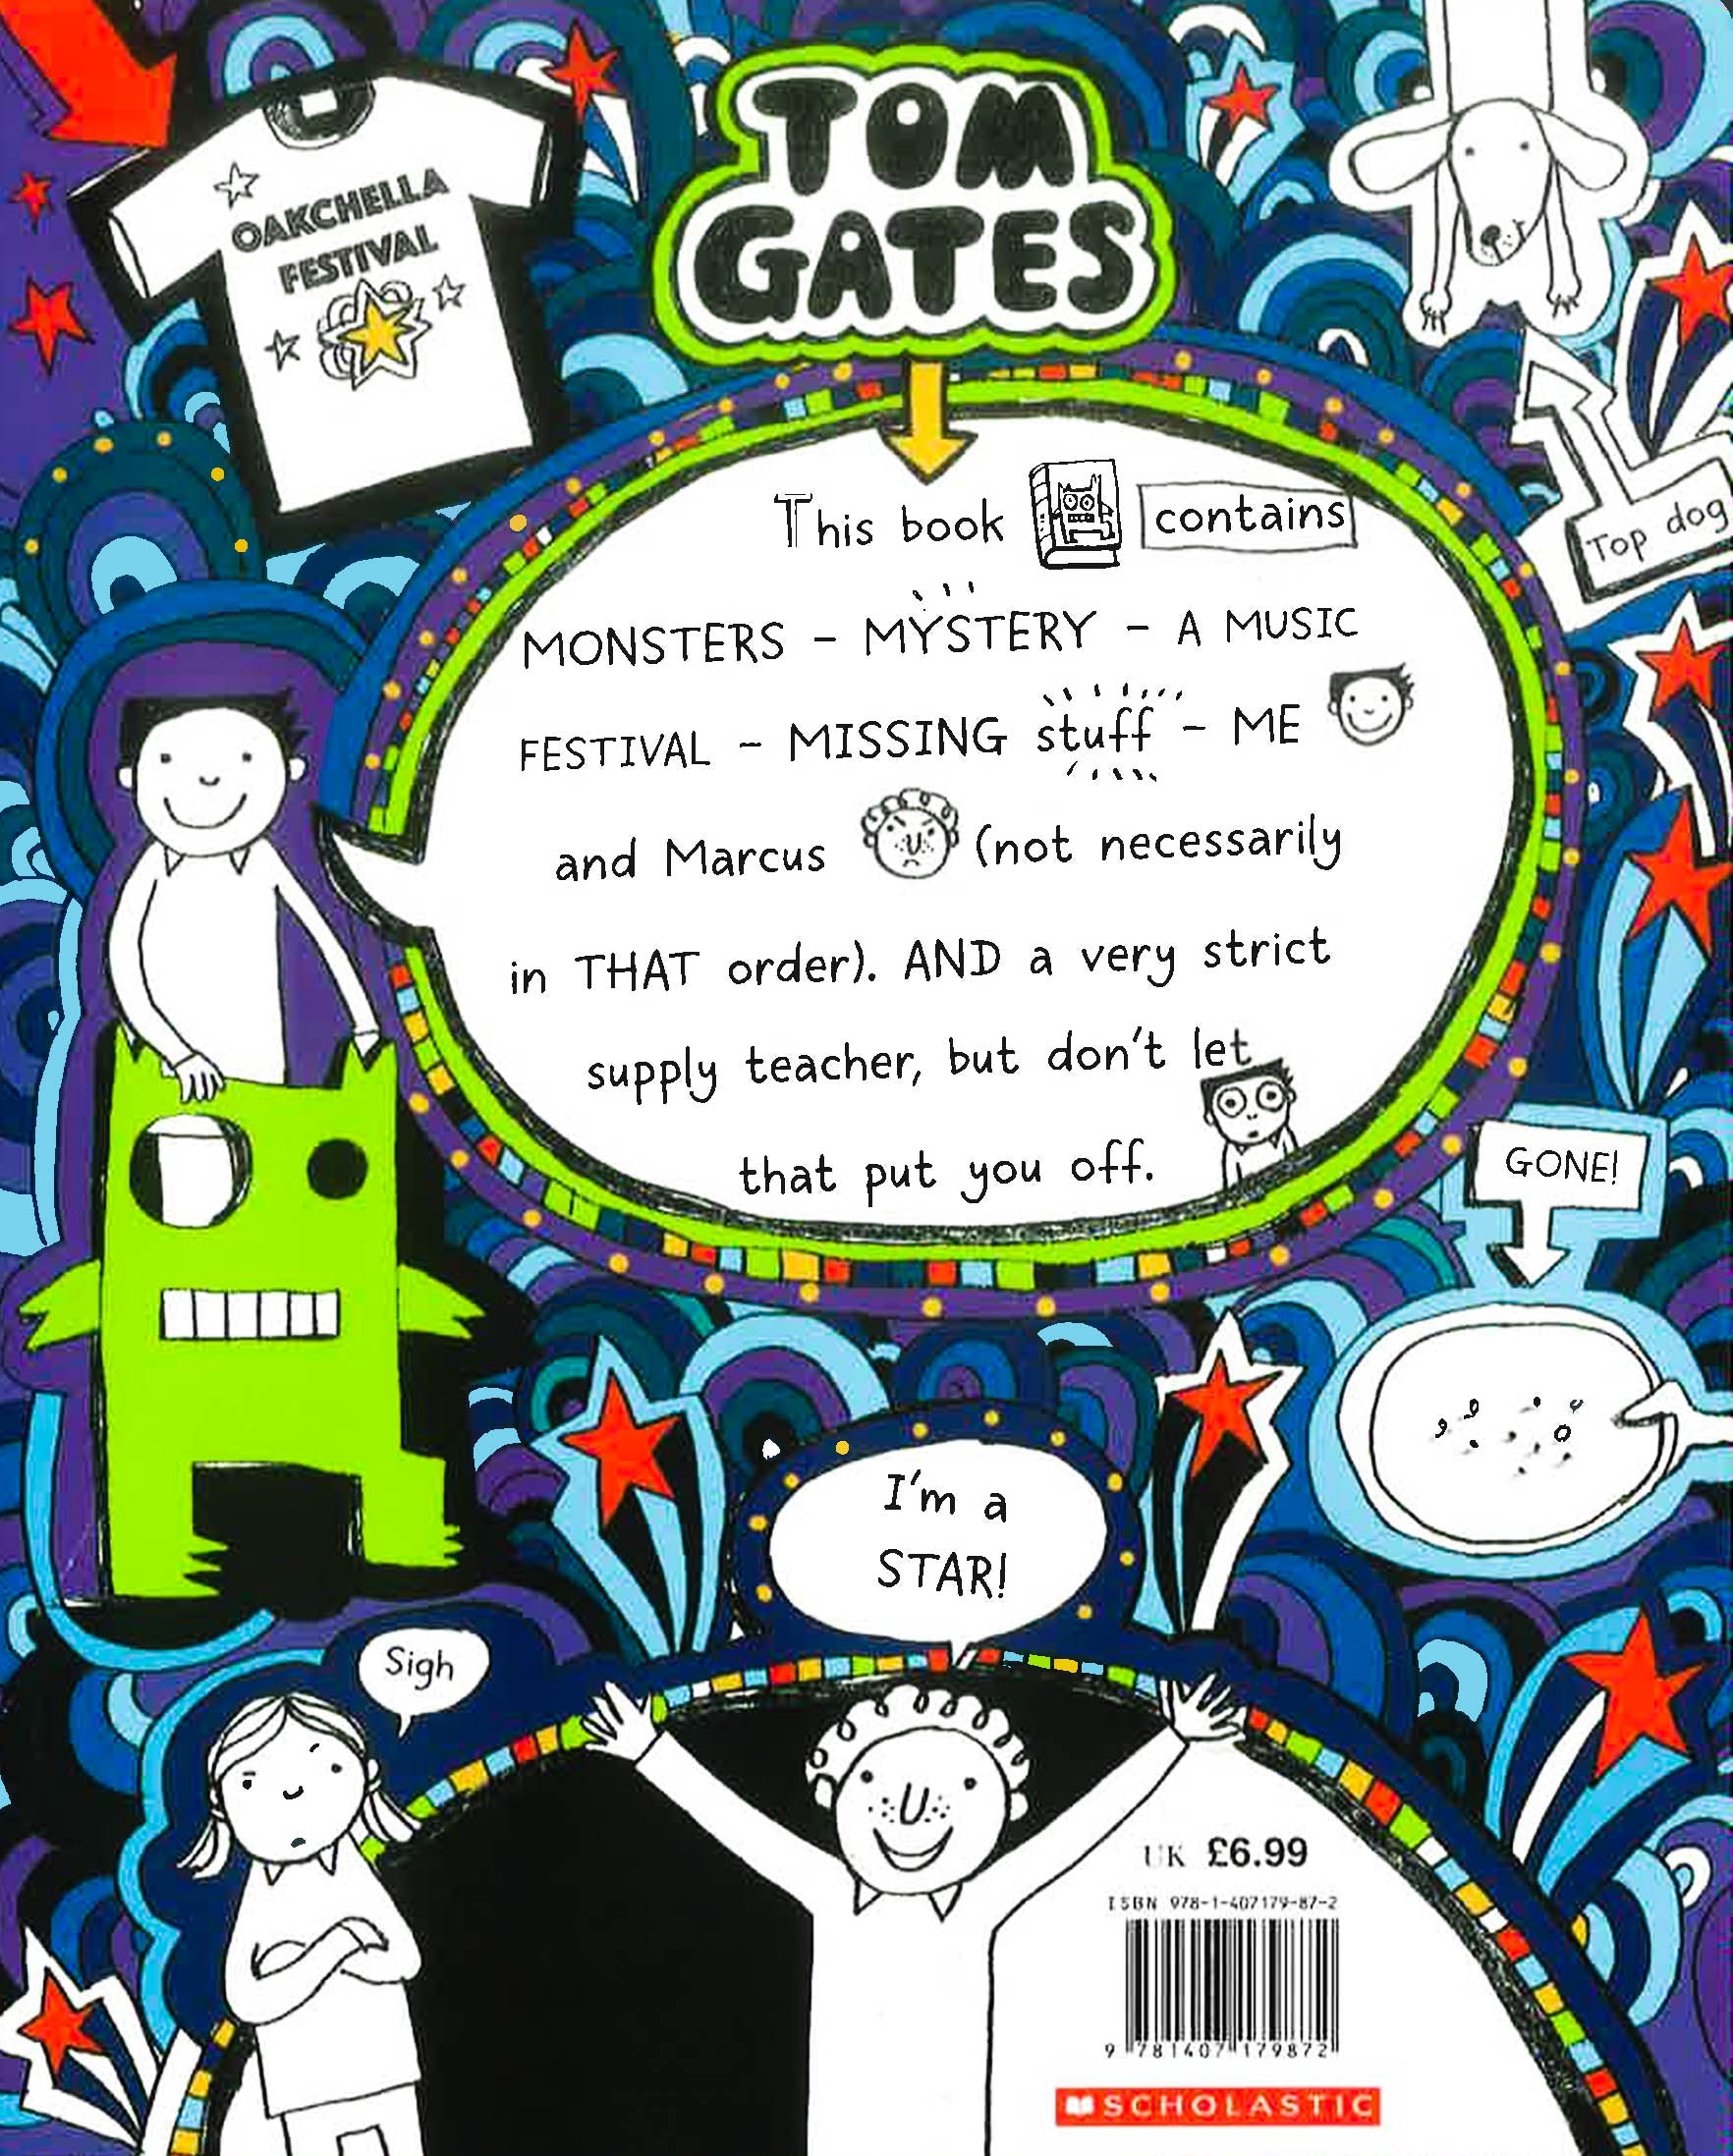 TOM
GATES
OAKCHELLA
FESTIVAL
Top dog
This book contains
MONSTERS – MYSTERY – A MUSIC
FESTIVAL – MISSING stuff – ME
and Marcus (not necessarily
in THAT order). AND a very strict
supply teacher, but don't let
that put you off.
GONE!
I'm a
STAR!
Sigh
UK £6.99
ISBN 978-1-407179-87-2
9 781407 179872
SCHOLASTIC